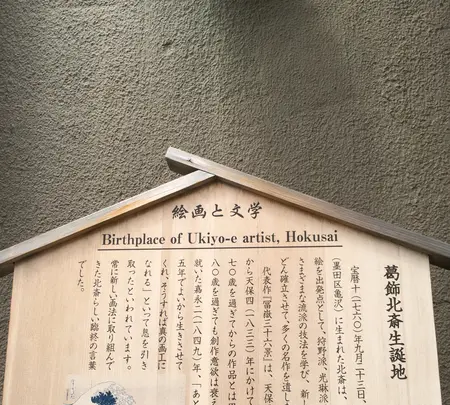 絵画と文学
Birthplace of Ukiyo-e artist, Hokusai
葛飾北斎生誕地
宝暦十(一七六〇)年九月二十三日、
(墨田区亀沢)に生まれた北斎は、
絵を出発点として、狩野派、光琳派
さまざまな流派の技法を学び、新し
どん確立させて、多くの名作を遺し
代表作『富嶽三十六景』は、天保
から天保四(一八三三)年にかけて
七〇歳を過ぎてからの作品とは思
八〇歳を過ぎても創作意欲は衰え
就いた嘉永二(一八四九)年、「あと
五年でまいから生きさせて
くれ、そうすれば真の画工に
なれる」といって息を引き
取ったといわれています。
常に新しい画法に取り組んで
きた北斎らしい臨終の言葉
でした。